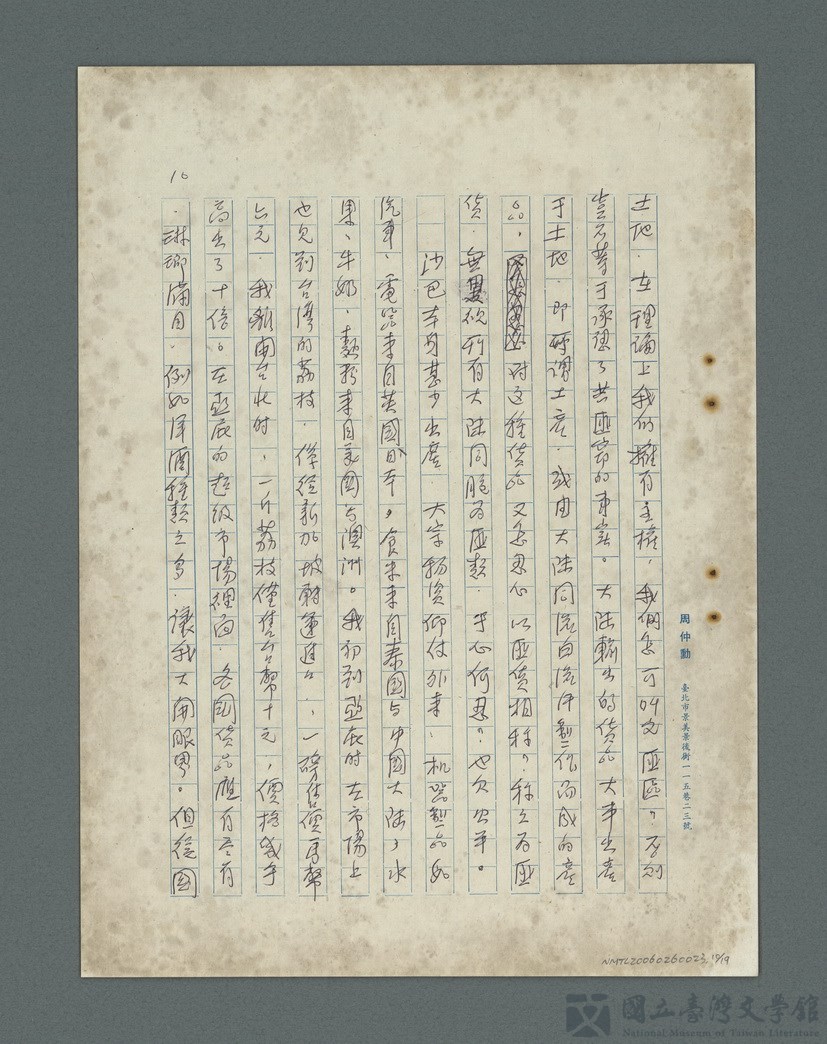 周仲勳 臺北市景美景後街一一五巷二三號
土地.在理論上我们擁有主權,我們怎可叫它匪區?否則
豈不等于承認了共匪竊的事實。大陸輸出的貨品大半出產
于土地.即所謂土產.或由大陸同胞白流汗製作而成的產
品,对这種貨品又怎忍心以匪貨相称?称之为匪
貨.無異视所有大陸同胞为匪類.于心何忍?也欠公平。
沙巴本身甚少出產 大宗物資仰仗外来.机器製品如
汽車、電器来自英國日本,食米来自泰國与中國大陸,水
果、牛奶、麵粉来自美國与澳洲。我初到亞庇时在市場上
也見到台灣的荔枝.僅經新加坡轉運進口,一磅售價馬幣
六元.我離開台北时,一斤荔枝僅售台幣十元,價格幾乎
高出了十倍。在亞庇的超級市場裡面.各國貨品應有尽有
.琳瑯滿目.例如洋酒種類之多.讓我大開眼界。但從國
10
NMTL20060260023 10/19
國立臺灣文學館
National Museum of Taiwan Literature